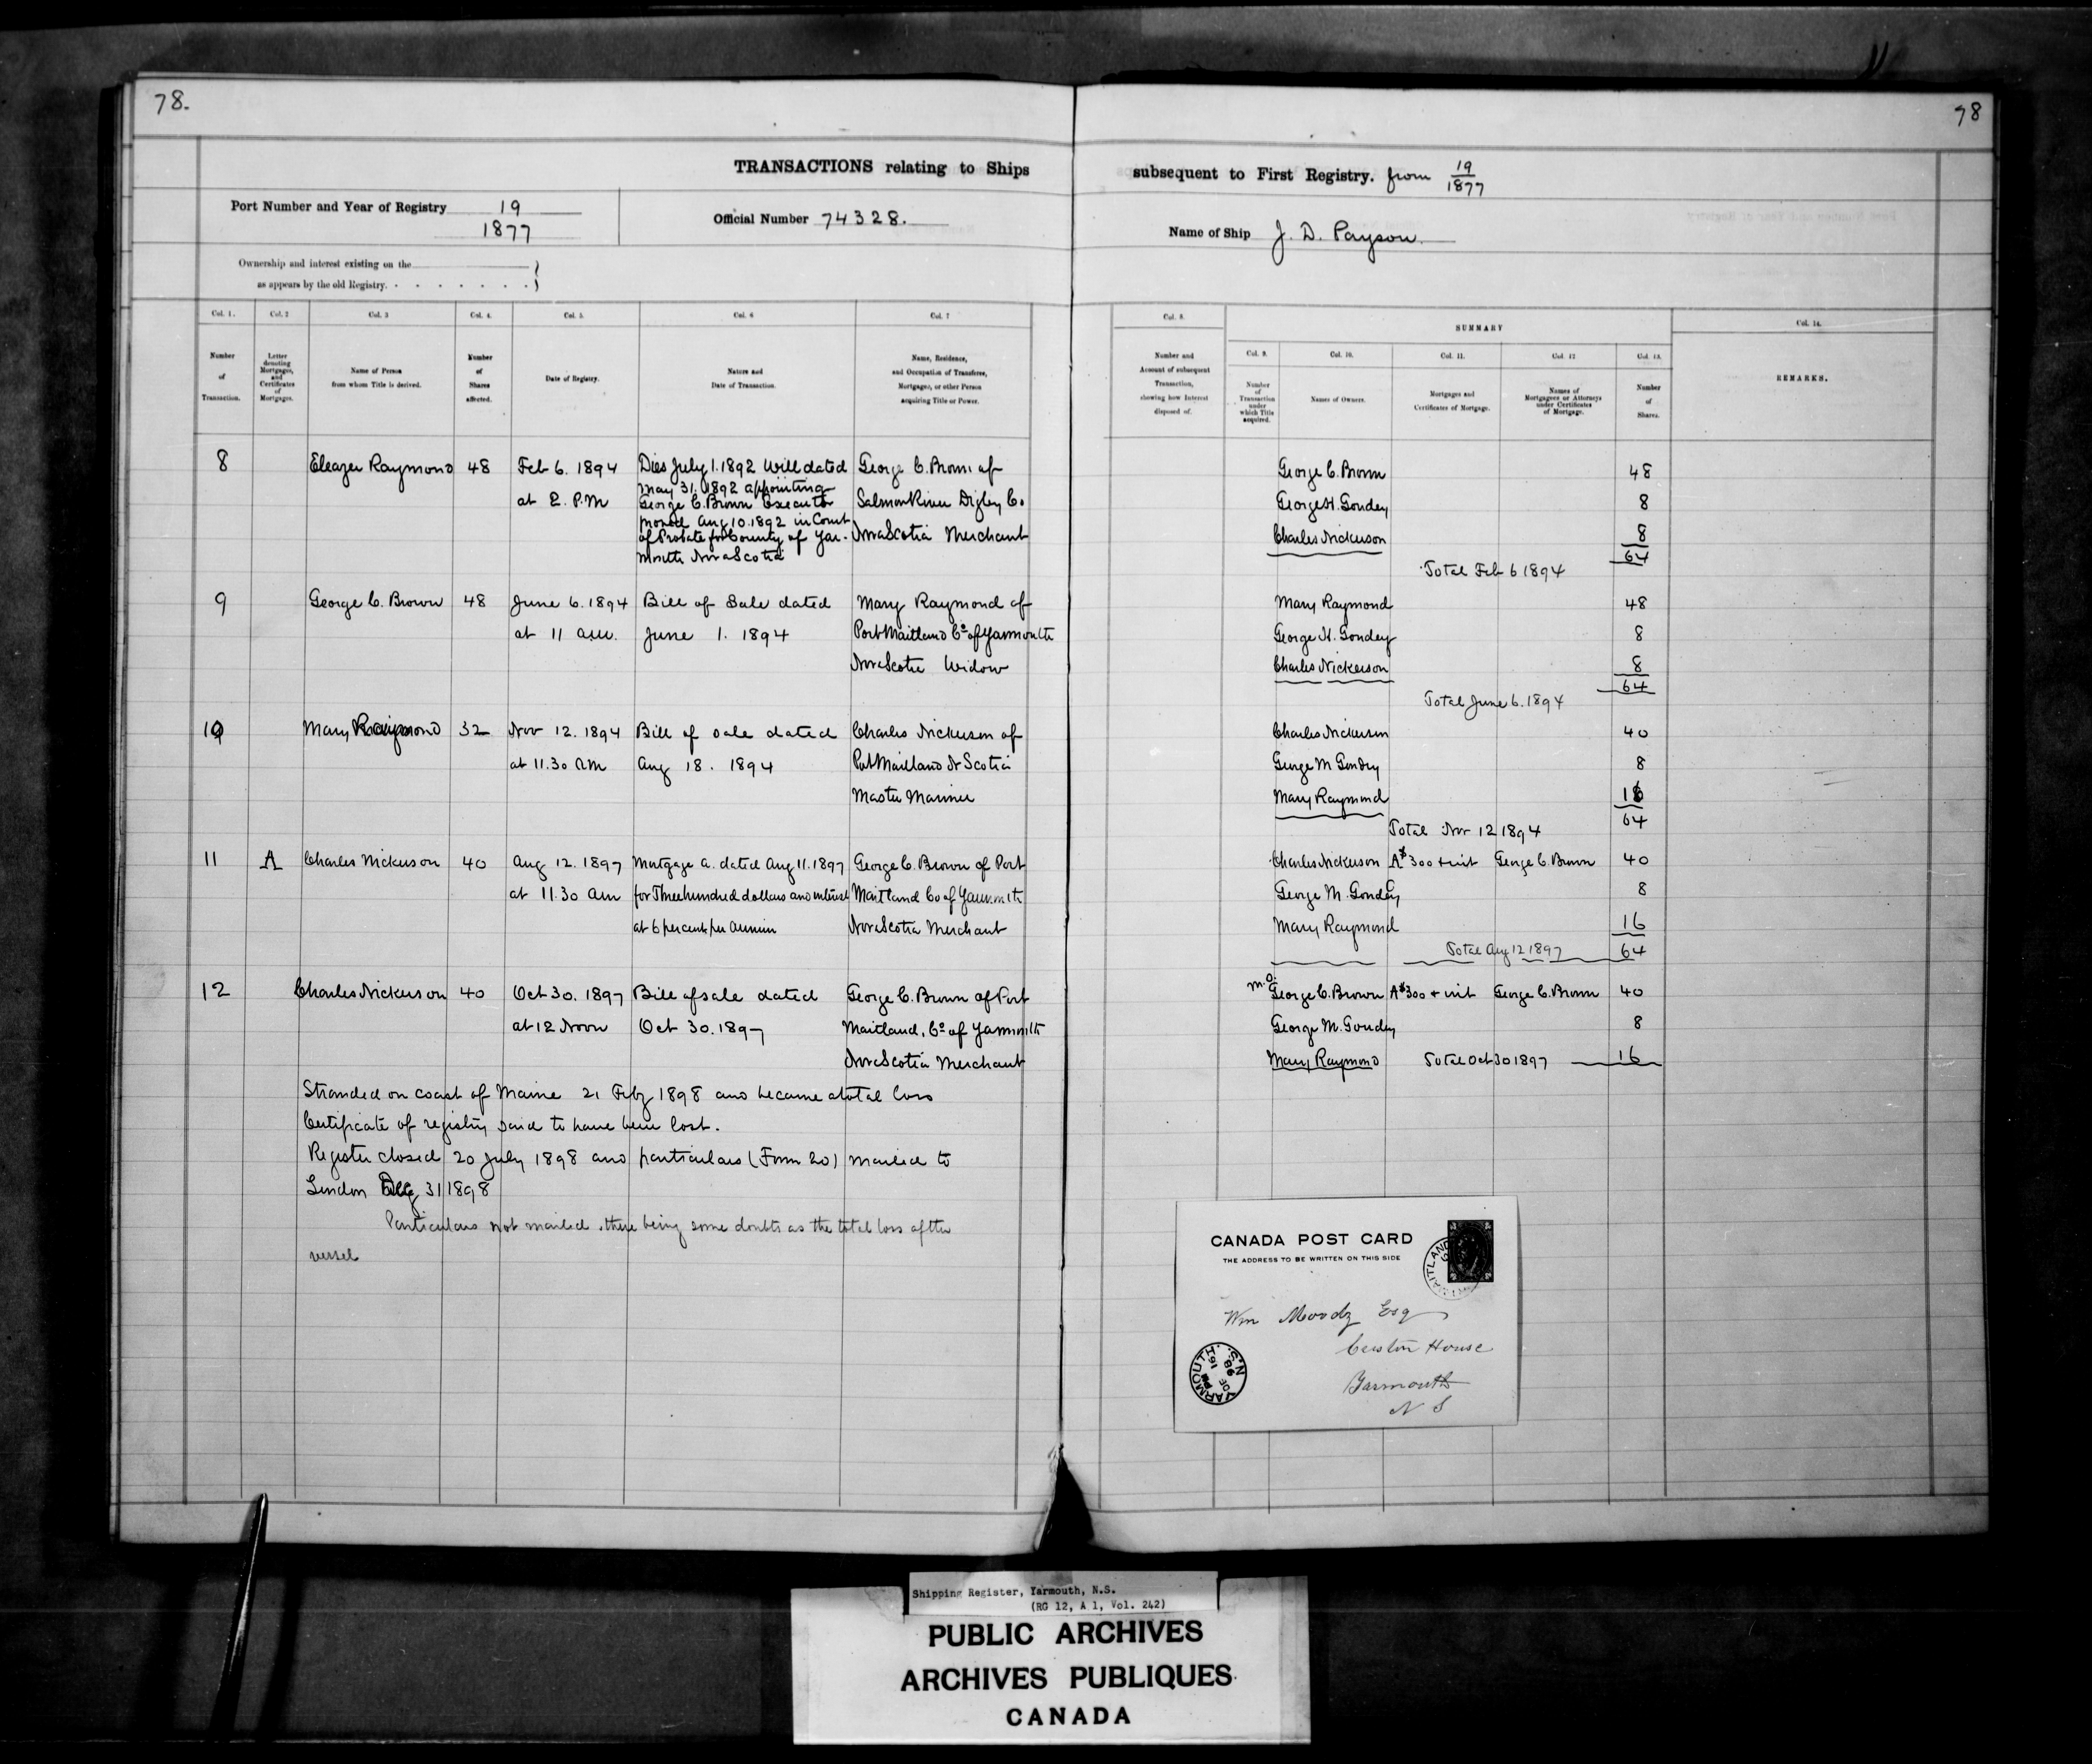 78.
78
TRANSACTIONS relating to Ships subsequent to First Registry. from 19/1877
Port Number and Year of Registry 19
1877
Official Number 74328.
Name of Ship J. D. Payson.
Ownership and interest existing on the
as appears by the old Registry.
Col. 1. Col. 2 Col. 3 Col. 4. Col. 5. Col. 6 Col. 7
Number of Transaction.
Letter denoting Mortgages, and Certificates of Mortgages.
Name of Person from whom Title is derived.
Number of Shares affected.
Date of Registry.
Nature and Date of Transaction.
Name, Residence, and Occupation of Transferee, Mortgagee, or other Person acquiring Title or Power.
Col. 8. SUMMARY Col. 14.
Col. 9. Col. 10. Col. 11. Col. 12 Col. 13.
Number and Account of subsequent Transaction, showing how Interest disposed of.
Number of Transaction under which Title acquired.
Names of Owners.
Mortgages and Certificates of Mortgage.
Names of Mortgagees or Attorneys under Certificates of Mortgage.
Number of Shares.
REMARKS.
8 Eleazer Raymond 48 Feb 6. 1894
at 2. P.M
Dies July 1. 1892 Will dated
May 31. 1892 appointing
George C. Brown Executor
proved Aug 10. 1892 in Court
of Probate for County of Yar-
mouth Nova Scotia
George C. Brown of
Salmon River Digby Co
Nova Scotia Merchant
George C. Brown 48
George H. Gondey 8
Charles Nickerson 8
64
Total Feb 6 1894
9 George C. Brown 48 June 6. 1894
at 11 am.
Bill of Sale dated
June 1. 1894
Mary Raymond of
Port Maitland Co of Yarmouth
Nova Scotia Widow
Mary Raymond 48
George H. Gondey 8
Charles Nickerson 8
64
Total June 6. 1894
10 Mary Raymond 32 Nov 12. 1894
at 11.30 am
Bill of sale dated
Aug 18. 1894
Charles Nickerson of
Port Maitland N Scotia
Master Mariner
Charles Nickerson 40
George M Gondey 8
Mary Raymond 16
64
Total Nov 12 1894
11 A Charles Nickerson 40 Aug 12. 1897
at 11.30 am
Mortgage A. dated Aug 11. 1897
for Three hundred dollars and interest
at 6 per cent per annum
George C. Brown of Port
Maitland Co of Yarmouth
Nova Scotia Merchant
Charles Nickerson A $300 + int George C. Brown 40
George M. Gondey 8
Mary Raymond 16
Total Aug 12 1897 64
12 Charles Nickerson 40 Oct 30. 1897
at 12 Noon
Bill of sale dated
Oct 30. 1897
George C. Brown of Port
Maitland, Co of Yarmouth
Nova Scotia Merchant
M.O. George C. Brown A $300 + int George C. Brown 40
George M. Gondey 8
Mary Raymond Total Oct 30 1897 16
Stranded on coast of Maine 21 Feby 1898 and became a total loss
Certificate of registry said to have been lost.
Register closed 20 July 1898 and particulars (Form 20) mailed to
London 31 1898
Particulars not mailed, there being some doubts as the total loss of the
vessel
CANADA POST CARD
THE ADDRESS TO BE WRITTEN ON THIS SIDE
MAITLAND
Wm Moody Esq
Custom House
Yarmouth
N S
YARMOUTH N.S.
DE 16 98
Shipping Register, Yarmouth, N.S.
(RG 12, A 1, Vol. 242)
PUBLIC ARCHIVES
ARCHIVES PUBLIQUES
CANADA